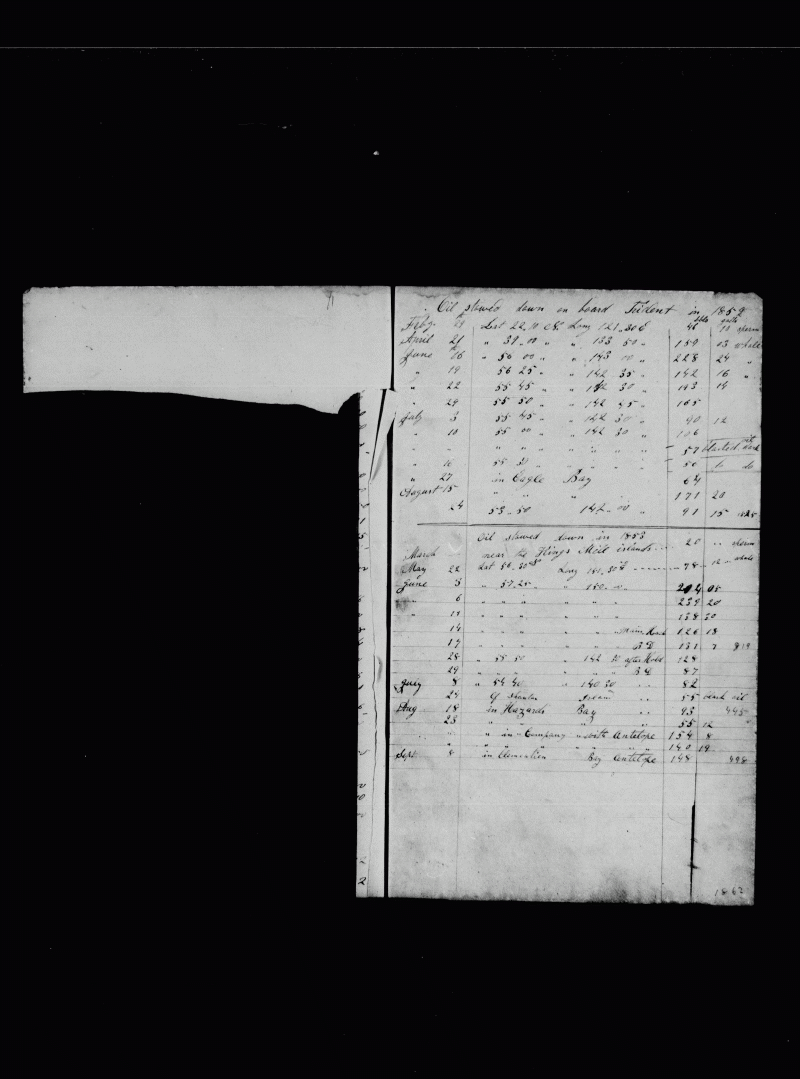 Oil stowed down on board Trident in 1859
bbls galls
Feby Lat 22.10 N. Long 121.30 E 46 10 sperm
April 21 " 39.00 " " 133 50 " 159 13 whale
June 16 " 56 00 " " 143 00 " 228 24 "
" 19 56 25 " " 142 35 " 142 16 "
" 22 55 45 " " 142 30 " 193 14
" 29 55 50 " 142 45 " 165
July 3 55 45 " " 142 30 " 90 12
" 10 55 00 " " 142 30 " 106
" " " " " " " 57
" 16 55 " " " " 50 to do
" 27 in Eagle Bay 64
August 15 " " " 171 20
24 53.50 142.00 " 91 15
Oil stowed down in 1858
March near the Kings Mill islands 20 " sperm
May 22 Lat 56.30 Long 151.30 E 98 12 " whale
June 3 " 57.25 " 150 " " 204 05
" 6 " " " " " 239 20
" 11 " " " " " 138 30
14 " " " " " Main 126 18
19 " " " " 131 7 819
28 " 55 50 " 142 30 after Hold 128
29 " " " " 87
July 8 " 54 40 " 140 30 " " 82
24 of Shantar Island " " 55 black oil
Aug 18 in Hazards Bay " " 93 445
23 " " " " 55 12 "
" " " in Company " with Antelope 154 8
" " " " " " " " 140 19
Sept 8 in Bay Antelope 148 898
1862